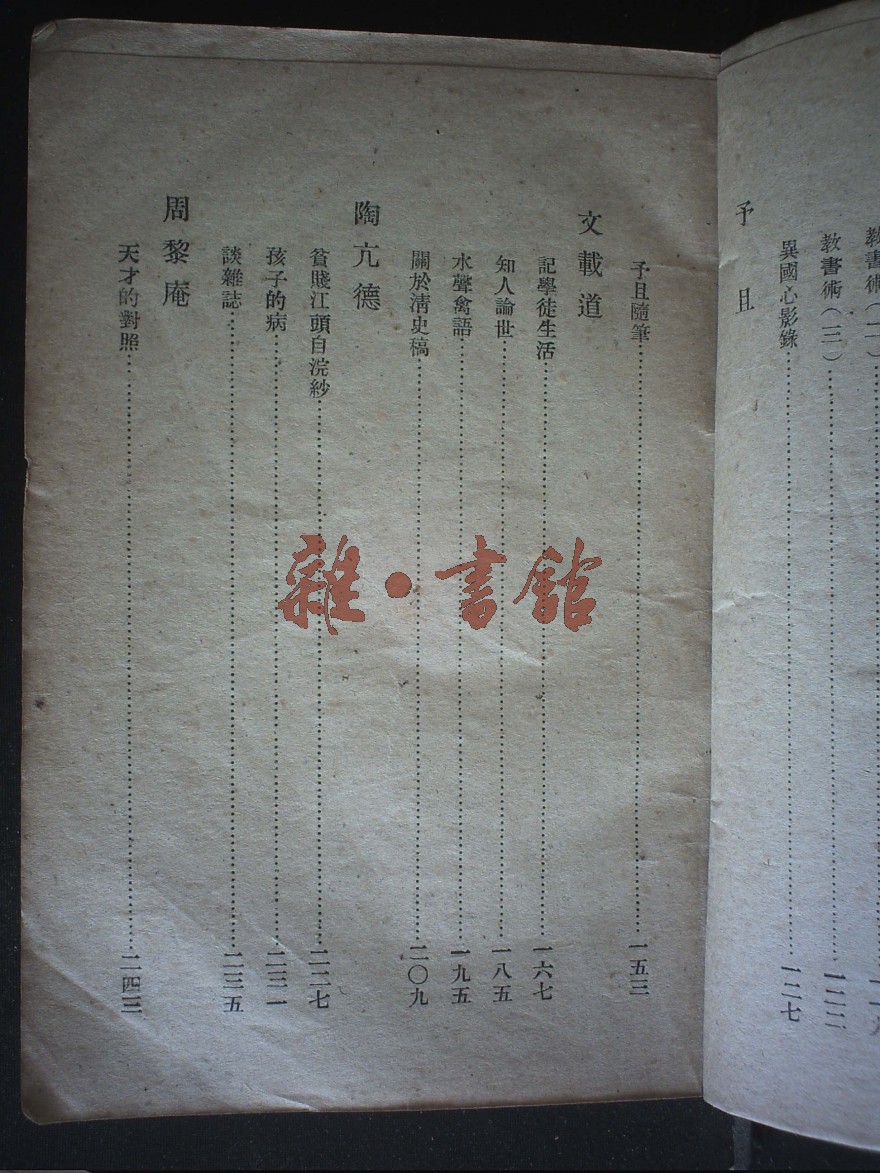 教書術(三)……一二三
予且
異國心影錄……一二七
予且隨筆……一五三
文載道
記學徒生活……一六七
知人論世……一八五
水聲禽語……一九五
關於清史稿……二〇九
陶亢德
貧賤江頭自浣紗……二二七
孩子的病……二三一
談雜誌……二三五
周黎庵
天才的對照……二四三
雜·書館